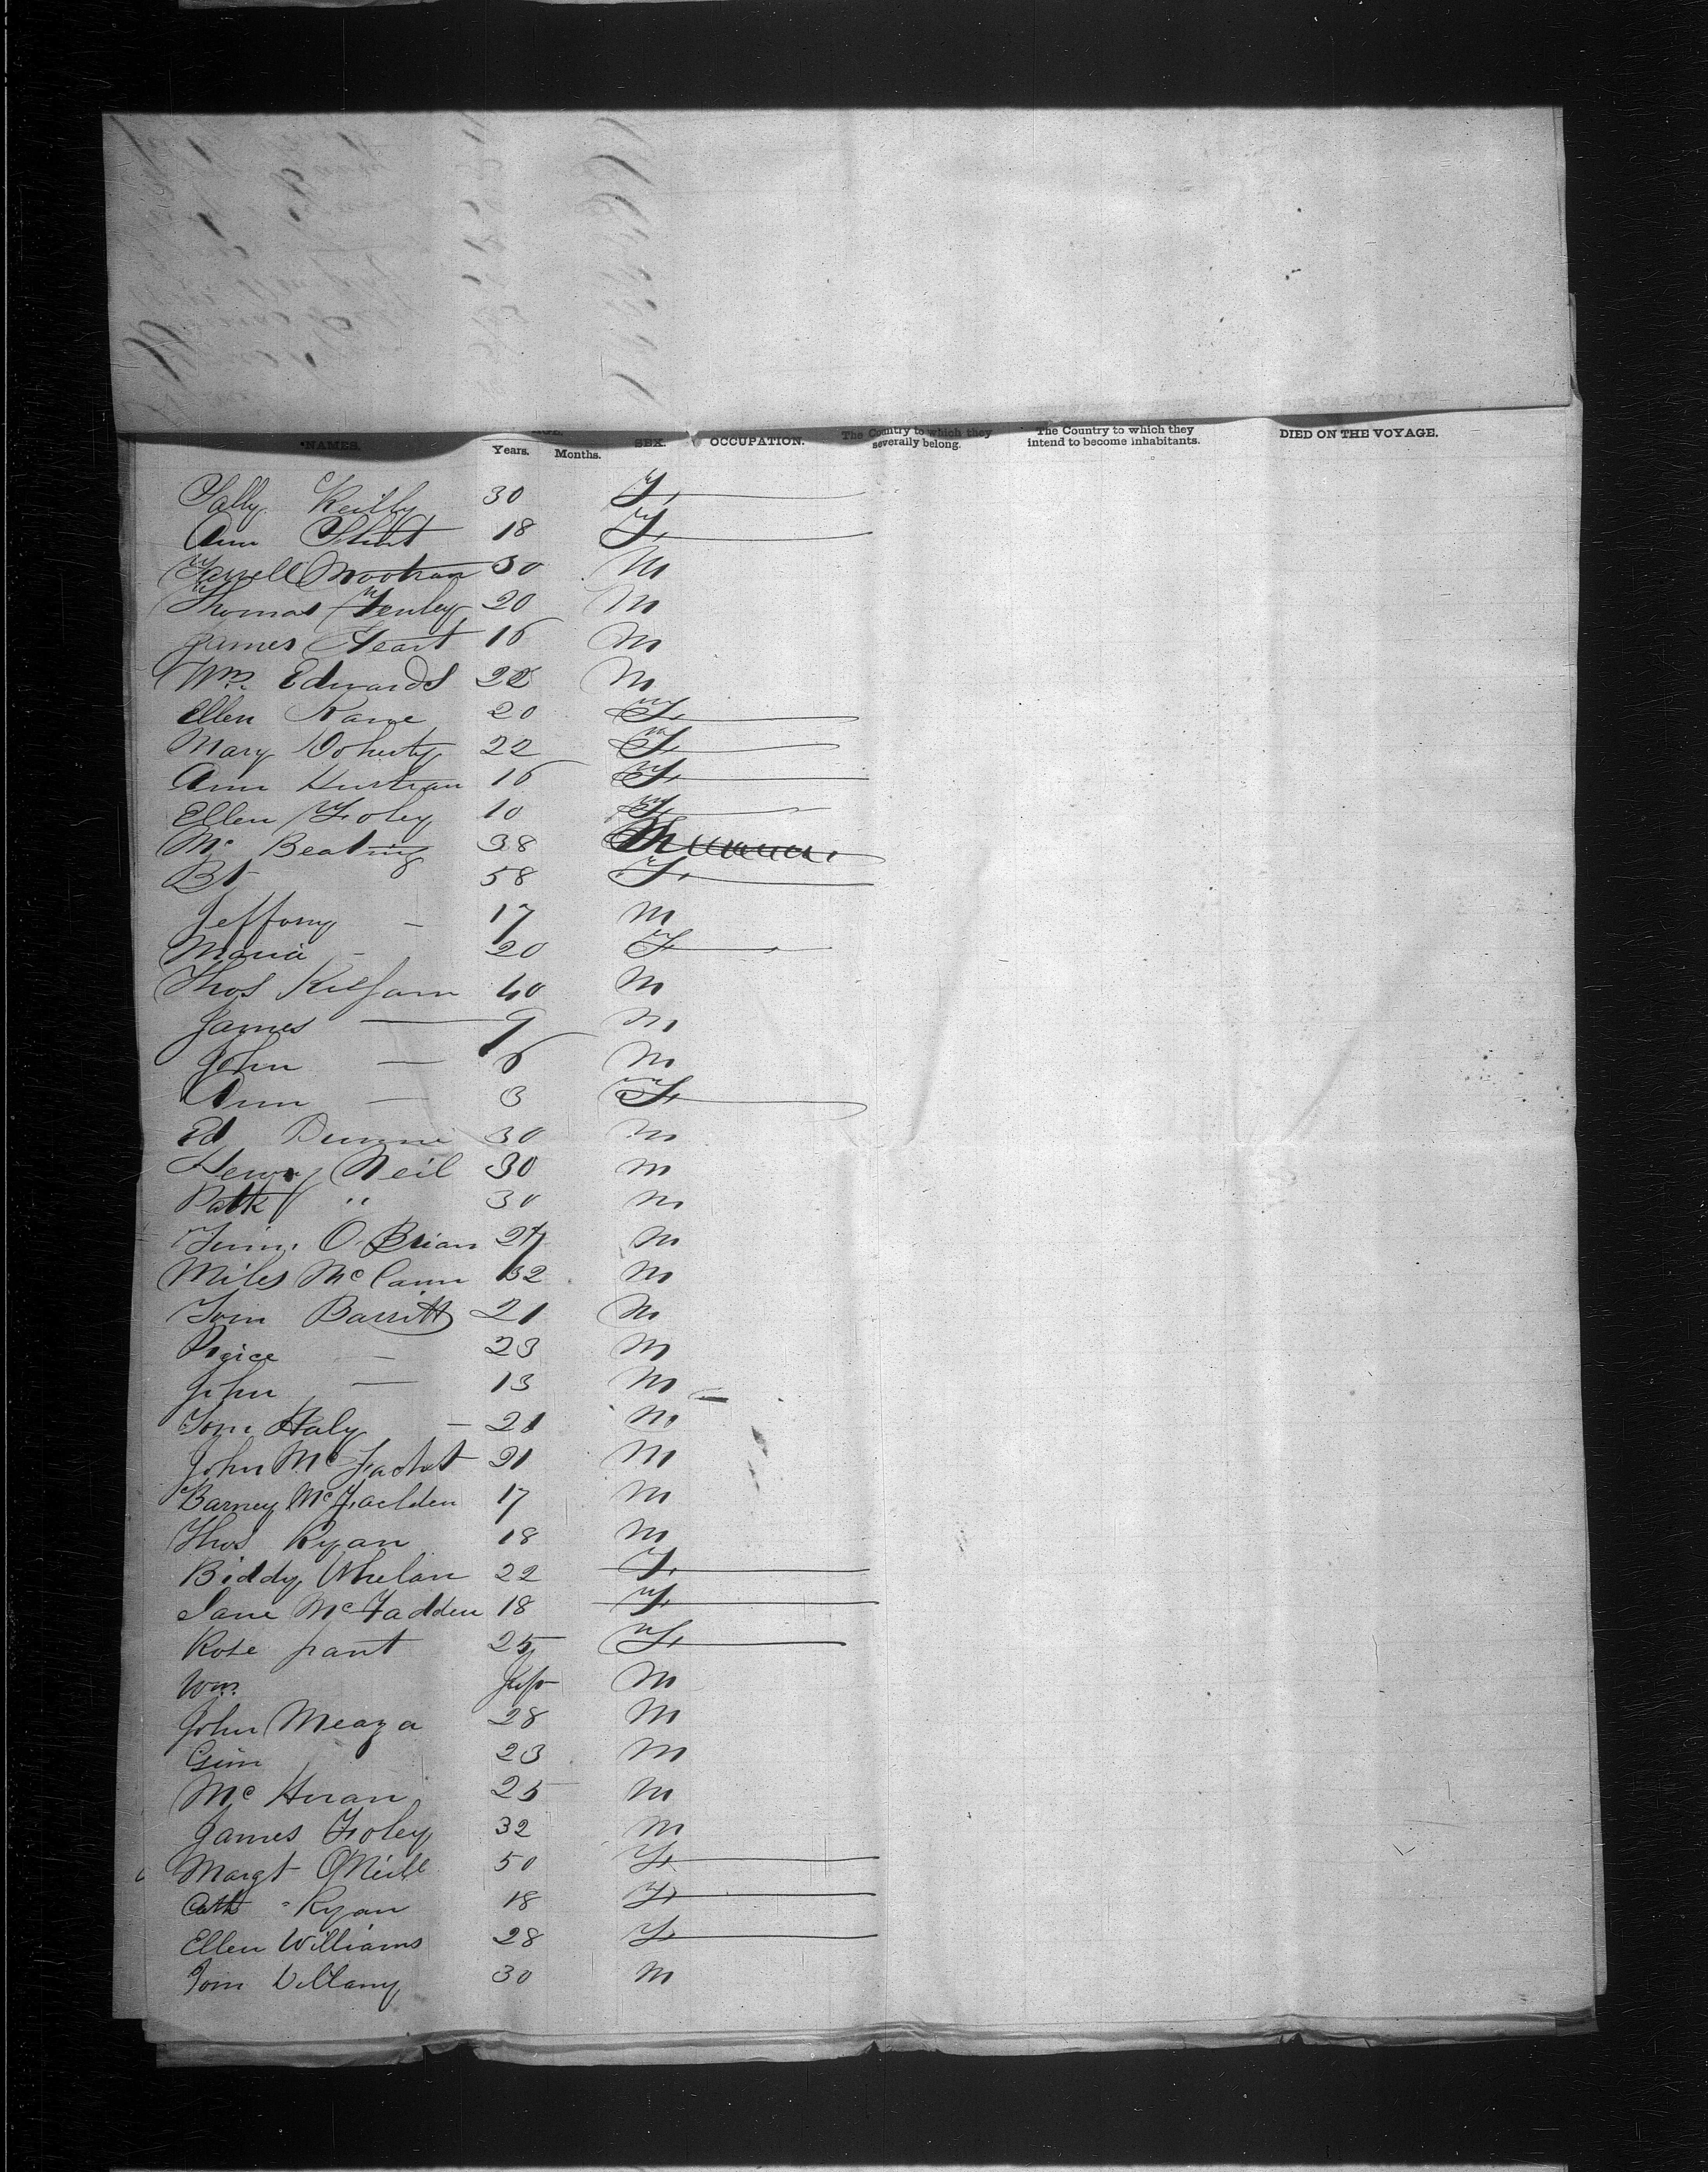 NAMES. Years. Months. SEX. OCCUPATION. The Country to which they severally belong. The Country to which they intend to become inhabitants. DIED ON THE VOYAGE.
Sally Reilly 30 F
Ann 18 F
Farrell 30 M
Thomas Fenley 20 M
James Heart 16 M
Wm. Edwards 22 M
Ellen Kane 20 F
Mary Doherty 22 F
Ann 16 F
Ellen Foley 10 F
Mc Beating 38
Bt 58 F
Jeffony - 17 M
Maria - 20 F
Thos 40 M
James — 9 M
John — 6 M
Ann — 3 F
Ed Dunne 30 M
Henry Neil 30 M
Patk " 30 M
O Brian 27 M
Miles McCann 32 M
Tom Barritt 21 M
Peirce — 23 M
John — 13 M
Tom Haly - 21 M
John Mc 21 M
Barney McFadden 17 M
Thos Ryan 18 M
Biddy Whelan 22 F
Jane McFadden 18 F
Rose 25 F
Wm. M
John Meaza 28 M
23 M
Mc 25 M
James Foley 32 M
Margt O'Neill 50 F
Cath Ryan 18 F
Ellen Williams 28 F
Tom Dillany 30 M